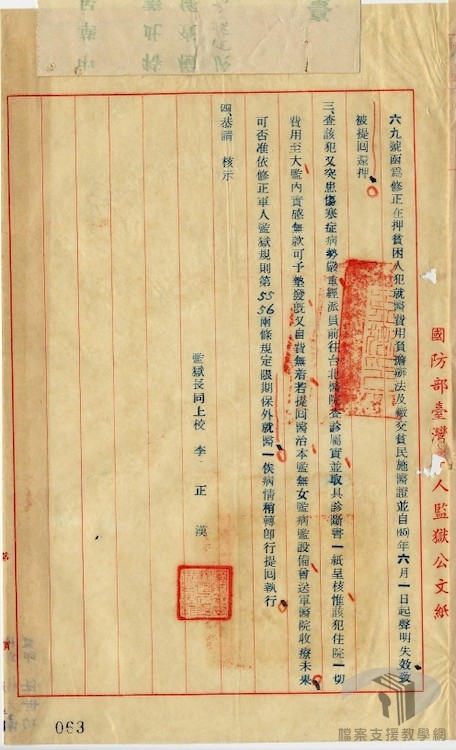 六九號函爲修正在押貧困人犯就醫費用負擔辦法及繳交貧民施醫證並自(45)年六月一日起聲明失效致
被提囘還押
三、查該犯又突患傷寒症病勢嚴重經派員前往台北醫院查診屬實並取具診斷書一紙呈核惟該犯住院一切
費用至大監內實感無款可予墊發旣又自費無着若提囘醫治本監無女監病監設備曾送軍醫院收療未果
可否准依修正軍人監獄規則第55 56兩條規定限期保外就醫一俟病情稍轉卽行提囘執行
四、恭請 核示
監獄長同上校 李 正 漢
國防部臺灣 人監獄公文紙
第
頁
063
檔案支援教學網